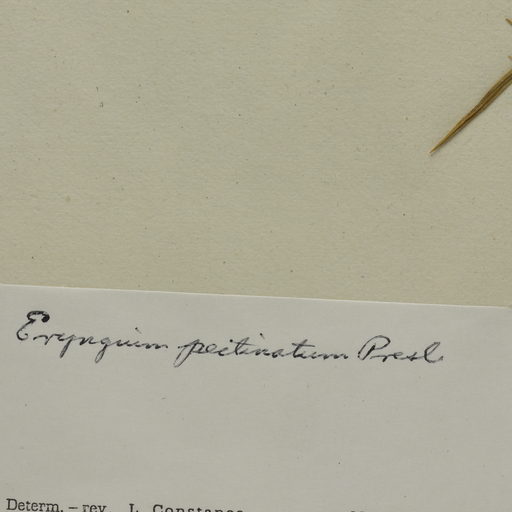 Eryngium pectinatum Presl
Determ. – rev. L. Constance